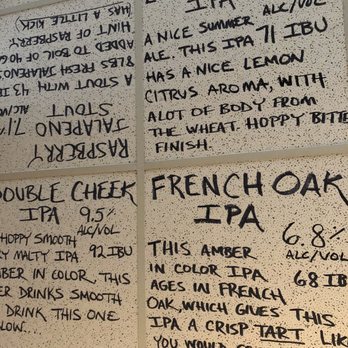 RASPBERRY
JALAPENO
STOUT 7.1
ALC/VO
A STOUT WITH 43 IB
BLES FRESH JALAPENOS
ADDED TO BOIL OF 40 G
HINT OF RASPBERRY
HAS A LITTLE KICK)
IPA ALC/VOL
A NICE SUMMER
ALE. THIS IPA 71 IBU
HAS A NICE LEMON
CITRUS AROMA, WITH
ALOT OF BODY FROM
THE WHEAT. HOPPY BITTE
FINISH.
DOUBLE CHEEK
IPA 9.5%
ALC/VOL
HOPPY SMOOTH
Y MALTY IPA 92 IBU
BER IN COLOR, THIS
ER DRINKS SMOOTH
DRINK THIS ONE
LOW....
FRENCH OAK
IPA 6.8%
ALC/VOL
THIS AMBER
IN COLOR IPA 68 IB
AGES IN FRENCH
OAK, WHICH GIVES THIS
IPA A CRISP TART LIK
YOU WOULD